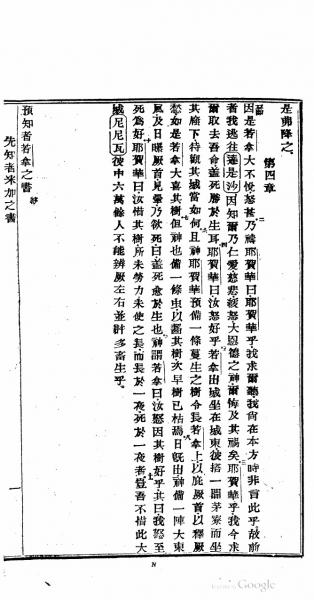 是弗降之、
第四章
因是若拿大不悅怒甚乃禱耶賀華曰耶賀華乎我求爾聽我尚在本方時非言此乎故前
者我逃往達是沙因知爾乃仁愛慈悲緩怒大恩德之神爾悔及其禍矣耶賀華乎我今求
爾取去吾命蓋死勝於生耳耶賀華曰汝怒好乎若拿出城坐在城東彼搭一個茅寮而坐
其底下待觀其城當如何且神耶賀華預備一條蔓生之樹令長若拿上以庇厥首以釋厥
愁如是若拿大喜其樹但神也備一條虫以齧其樹次早樹已枯槁日旣出神備一陣大東
風及日曝厥首見暈乃欲死曰蓋死愈於生也神謂若拿曰汝怒因其樹好乎其曰我怒至
死為好耶賀華曰汝惜其樹所未勞力未使之長而長於一夜死於一夜者豈吾不惜此大
城尼尼瓦彼中六萬餘人不能辨厥左右並許多畜生乎、
預知者若拿之書 終
先知者米加之書
一
N
Google